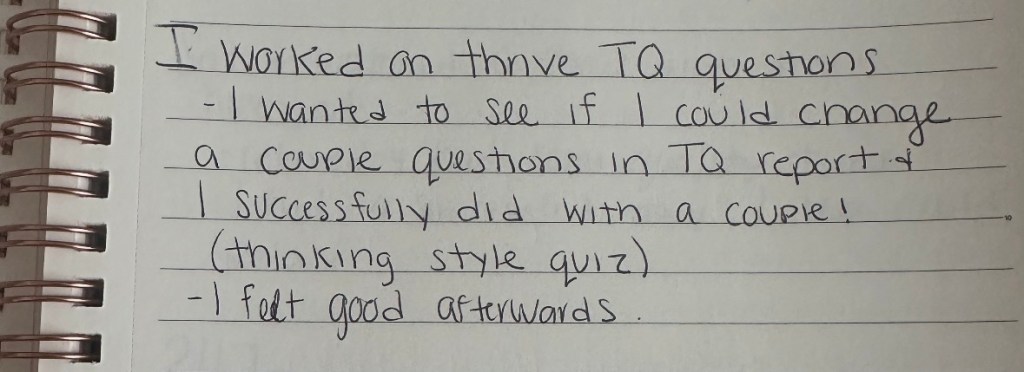 I worked on thrive TQ questions
- I wanted to see if I could change
a couple questions in TQ report &
I successfully did with a couple!
(thinking style quiz)
- I felt good afterwards.